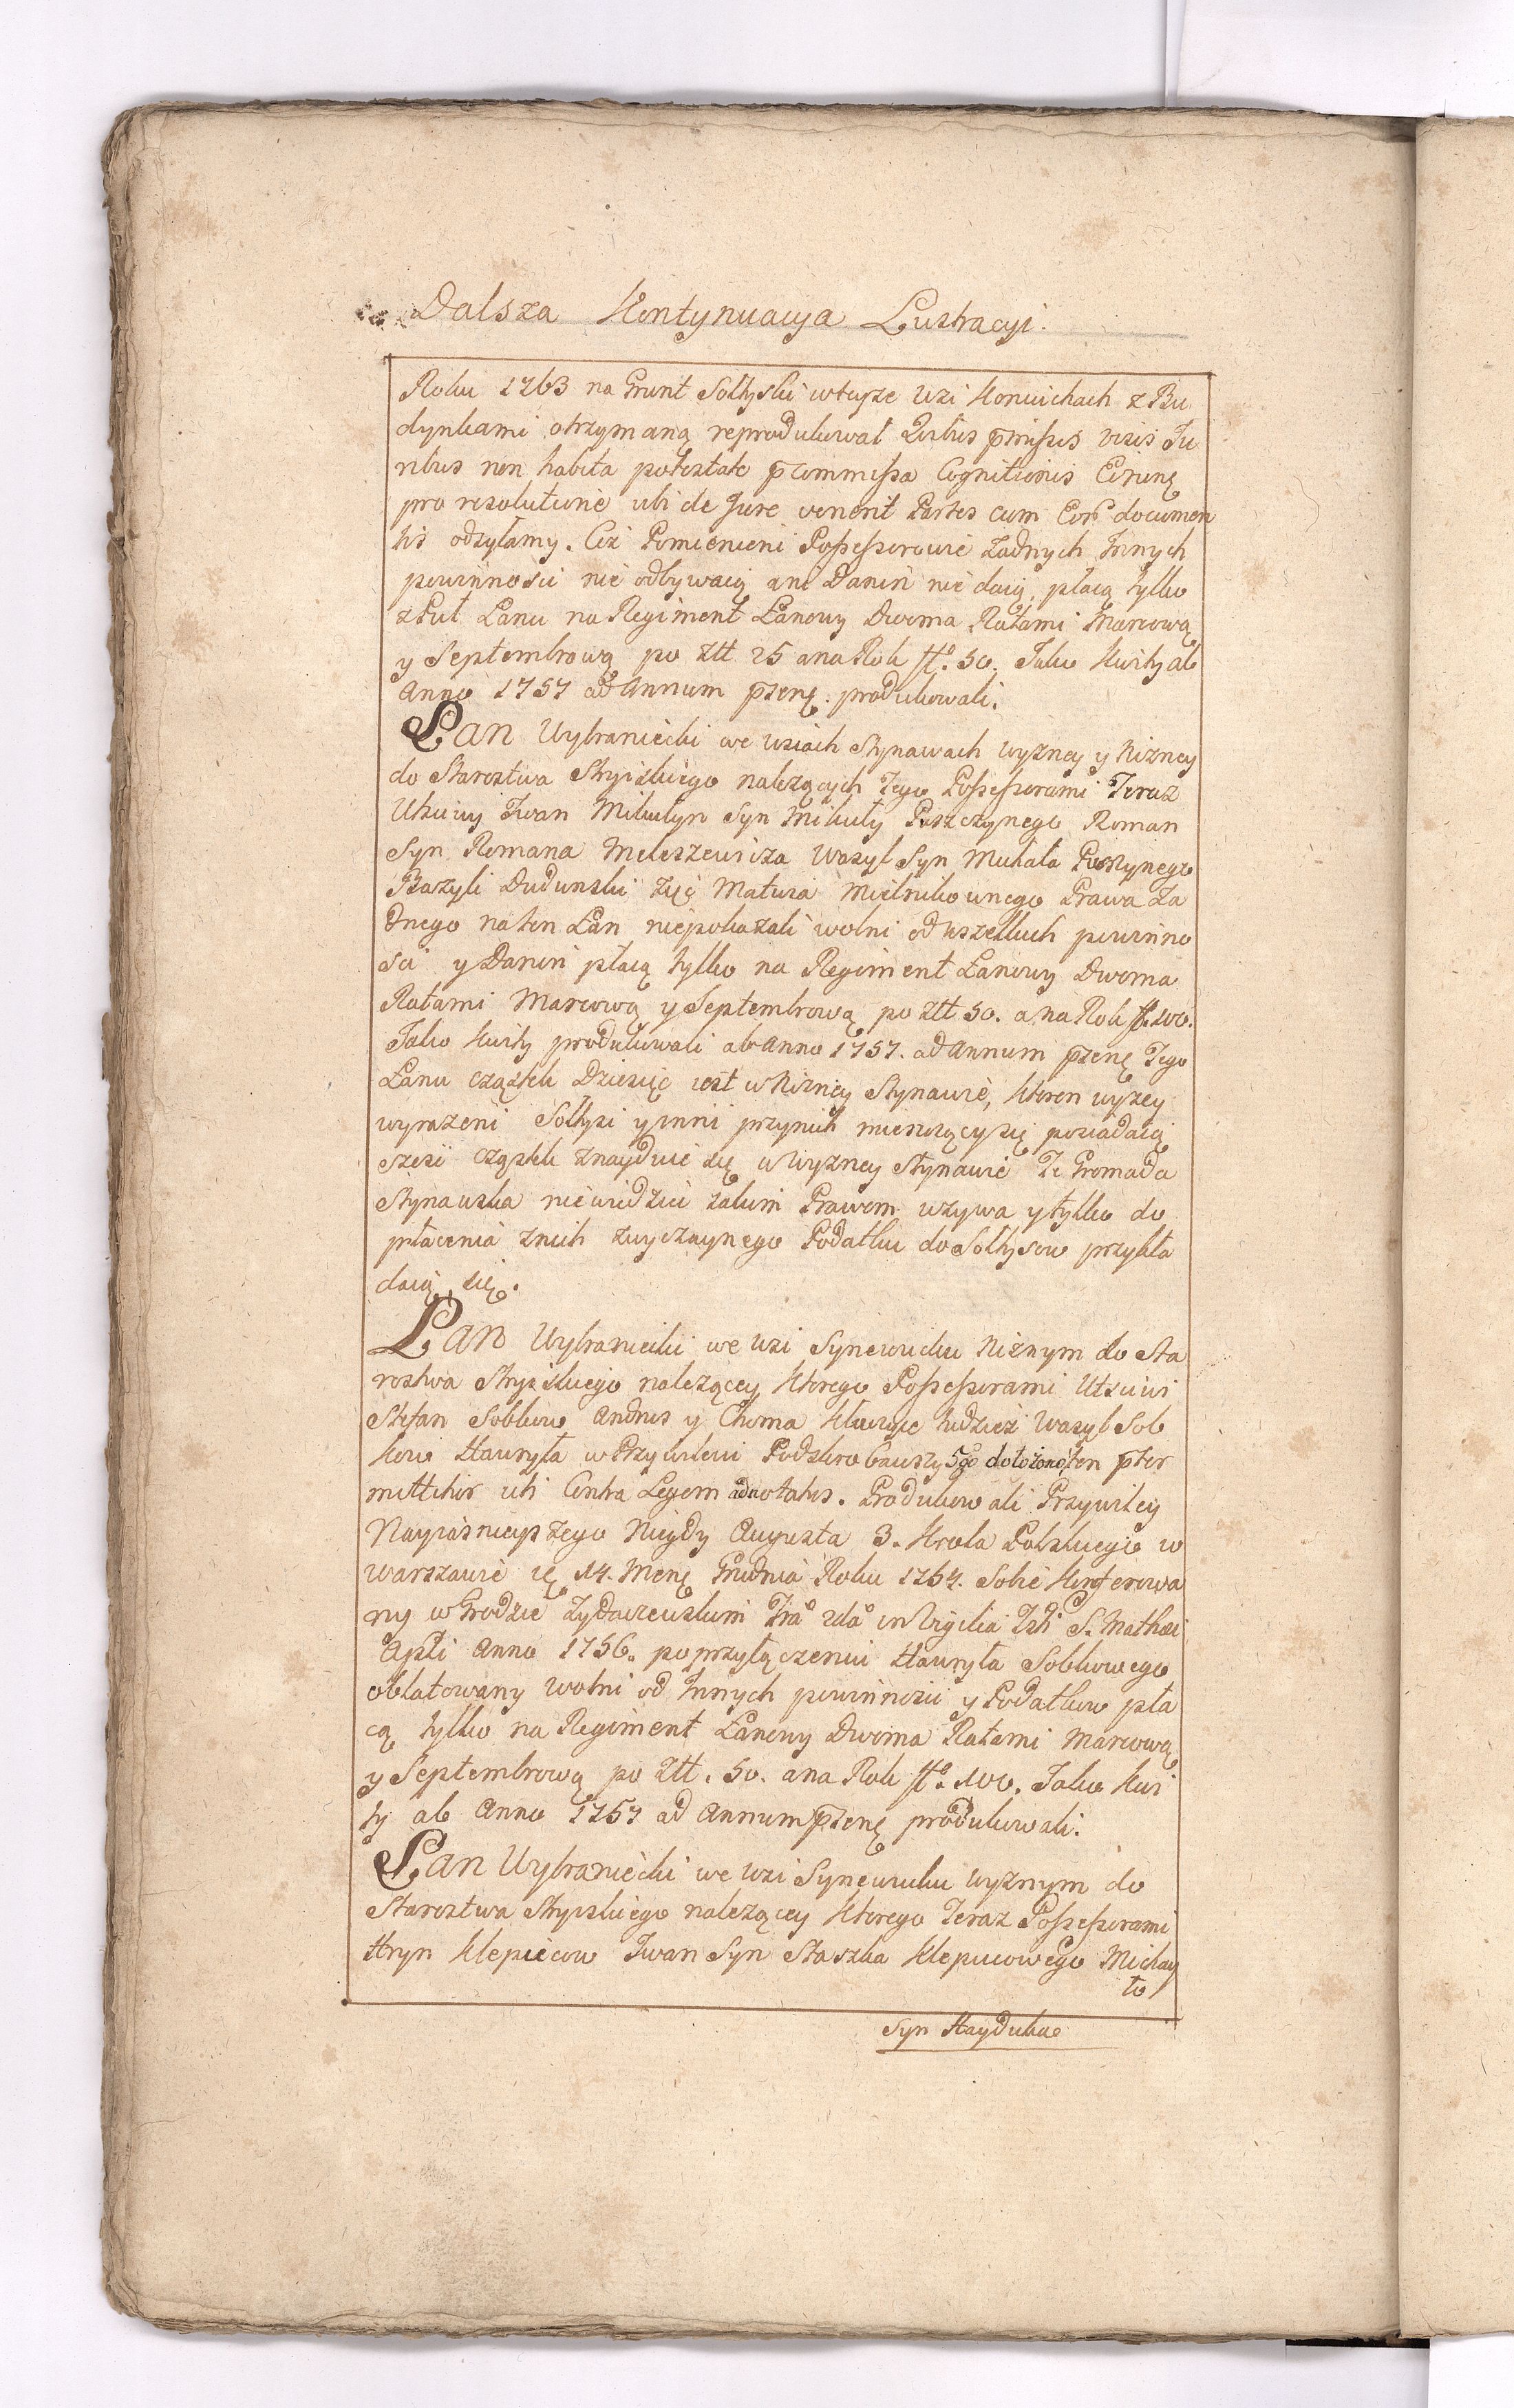 Dalsza Kontynuacya Lustracyi.
Roku 1763 na Grunt Soltyski wteyze Wsi Koniuchach z Bu
dynkami otrzymaną reprodukował Quibus pmissis visis Ju
ribus non habita potestate pcommissa Cognitionis Eorunę
pro resolutione ubi de Jure venerit Partes cum Eorū documen
tis odsyłamy. Ciż Pomienieni Possessorowie Żadnych Innych
powinności nie odbywaią ani Danin nie daią, płacą tylko
z Puł Łanu na Regiment Łanowy Dwoma Ratami Marcową
y Septembrową po Złł 25 a na Rok ff. 50. Jako Kwity ab
Anno 1757 ad Annum pzenę. produkowali.
Łan Wybraniecki we wsiach Stynawach wyzney y Nizney
do Starostwa Stryiskiego nalezących Tego Possessorami Teraz
Utsciwy Iwan Mikulyn Syn Mikuły Paszczynego Roman
Syn Romana Meleszewicza Wasyl Syn Muhała
Bazyli Dudunski Zięć Matwia Mielnikownego Prawa Ża
dnego na ten Łan niepokazali wolni od wszelkich powinno
sci y Danin płacą tylko na Regiment Łanowy Dwoma
Ratami Marcową y Septembrową po Złł 50. a na Rok ff. 100.
Jako Kwity produkowali ab Anno 1757. ad Annum pzenę Tego
Łanu cząstek Dziesięc iest w Nizney Stynawie, Ktoren wyzey
wyrazeni Soltysi y inni przynich miesczący się posiadaią
szesc cząstek znayduie się w Wyzney Stynawie Te Gromada
Stynawska niewidziec zakim Prawem uzywa y tylko do
płacenia znich zwyczaynego Podatku do Soltysow przykła
daią się.
Łan Wybraniecki we wsi Synewucku Niznym do Sta
rostwa Stryiskiego nalezącey Ktorego Possessorami Utsciwi
Stefan Sobkow Andrus y Choma tudziez Wasyl Sob
kow Hawryła w Przywileiu Podskrobawszy 5go dołożono, ten pter
mittitur uti Contra Legem adnotatus. Produkowali Przywiley
Nayiasnieyszego Niegdy Augusta 3. Krola Polskiego w
Warszawie ię 14. Menę Grudnia Roku 1754. Sobie Konferowa
ny w Grodzie Zydaczewskim Fria 2da in Vigilia Fsti S. Mathæi
Apłi Anno 1756. poprzyłączeniu Hawryła Sobkowego
oblatowany wolni od Innych powinnosci y Podatkow pła
cą tylko na Regiment Łanowy Dwoma Ratami Marcową
y Septembrową po Złł. 50. a na Rok ff. 100. Jako Kwi
ty ab Anno 1757 ad Annum pzenę produkowali.
Łan Wybraniecki we wsi Synewucku wyznym do
Starostwa Stryiskiego nalezącey Ktorego Teraz Possessorami
Hryn Klepiecow Iwan Syn Staszka Klepucowego Michay
ło
Syn Hayduka